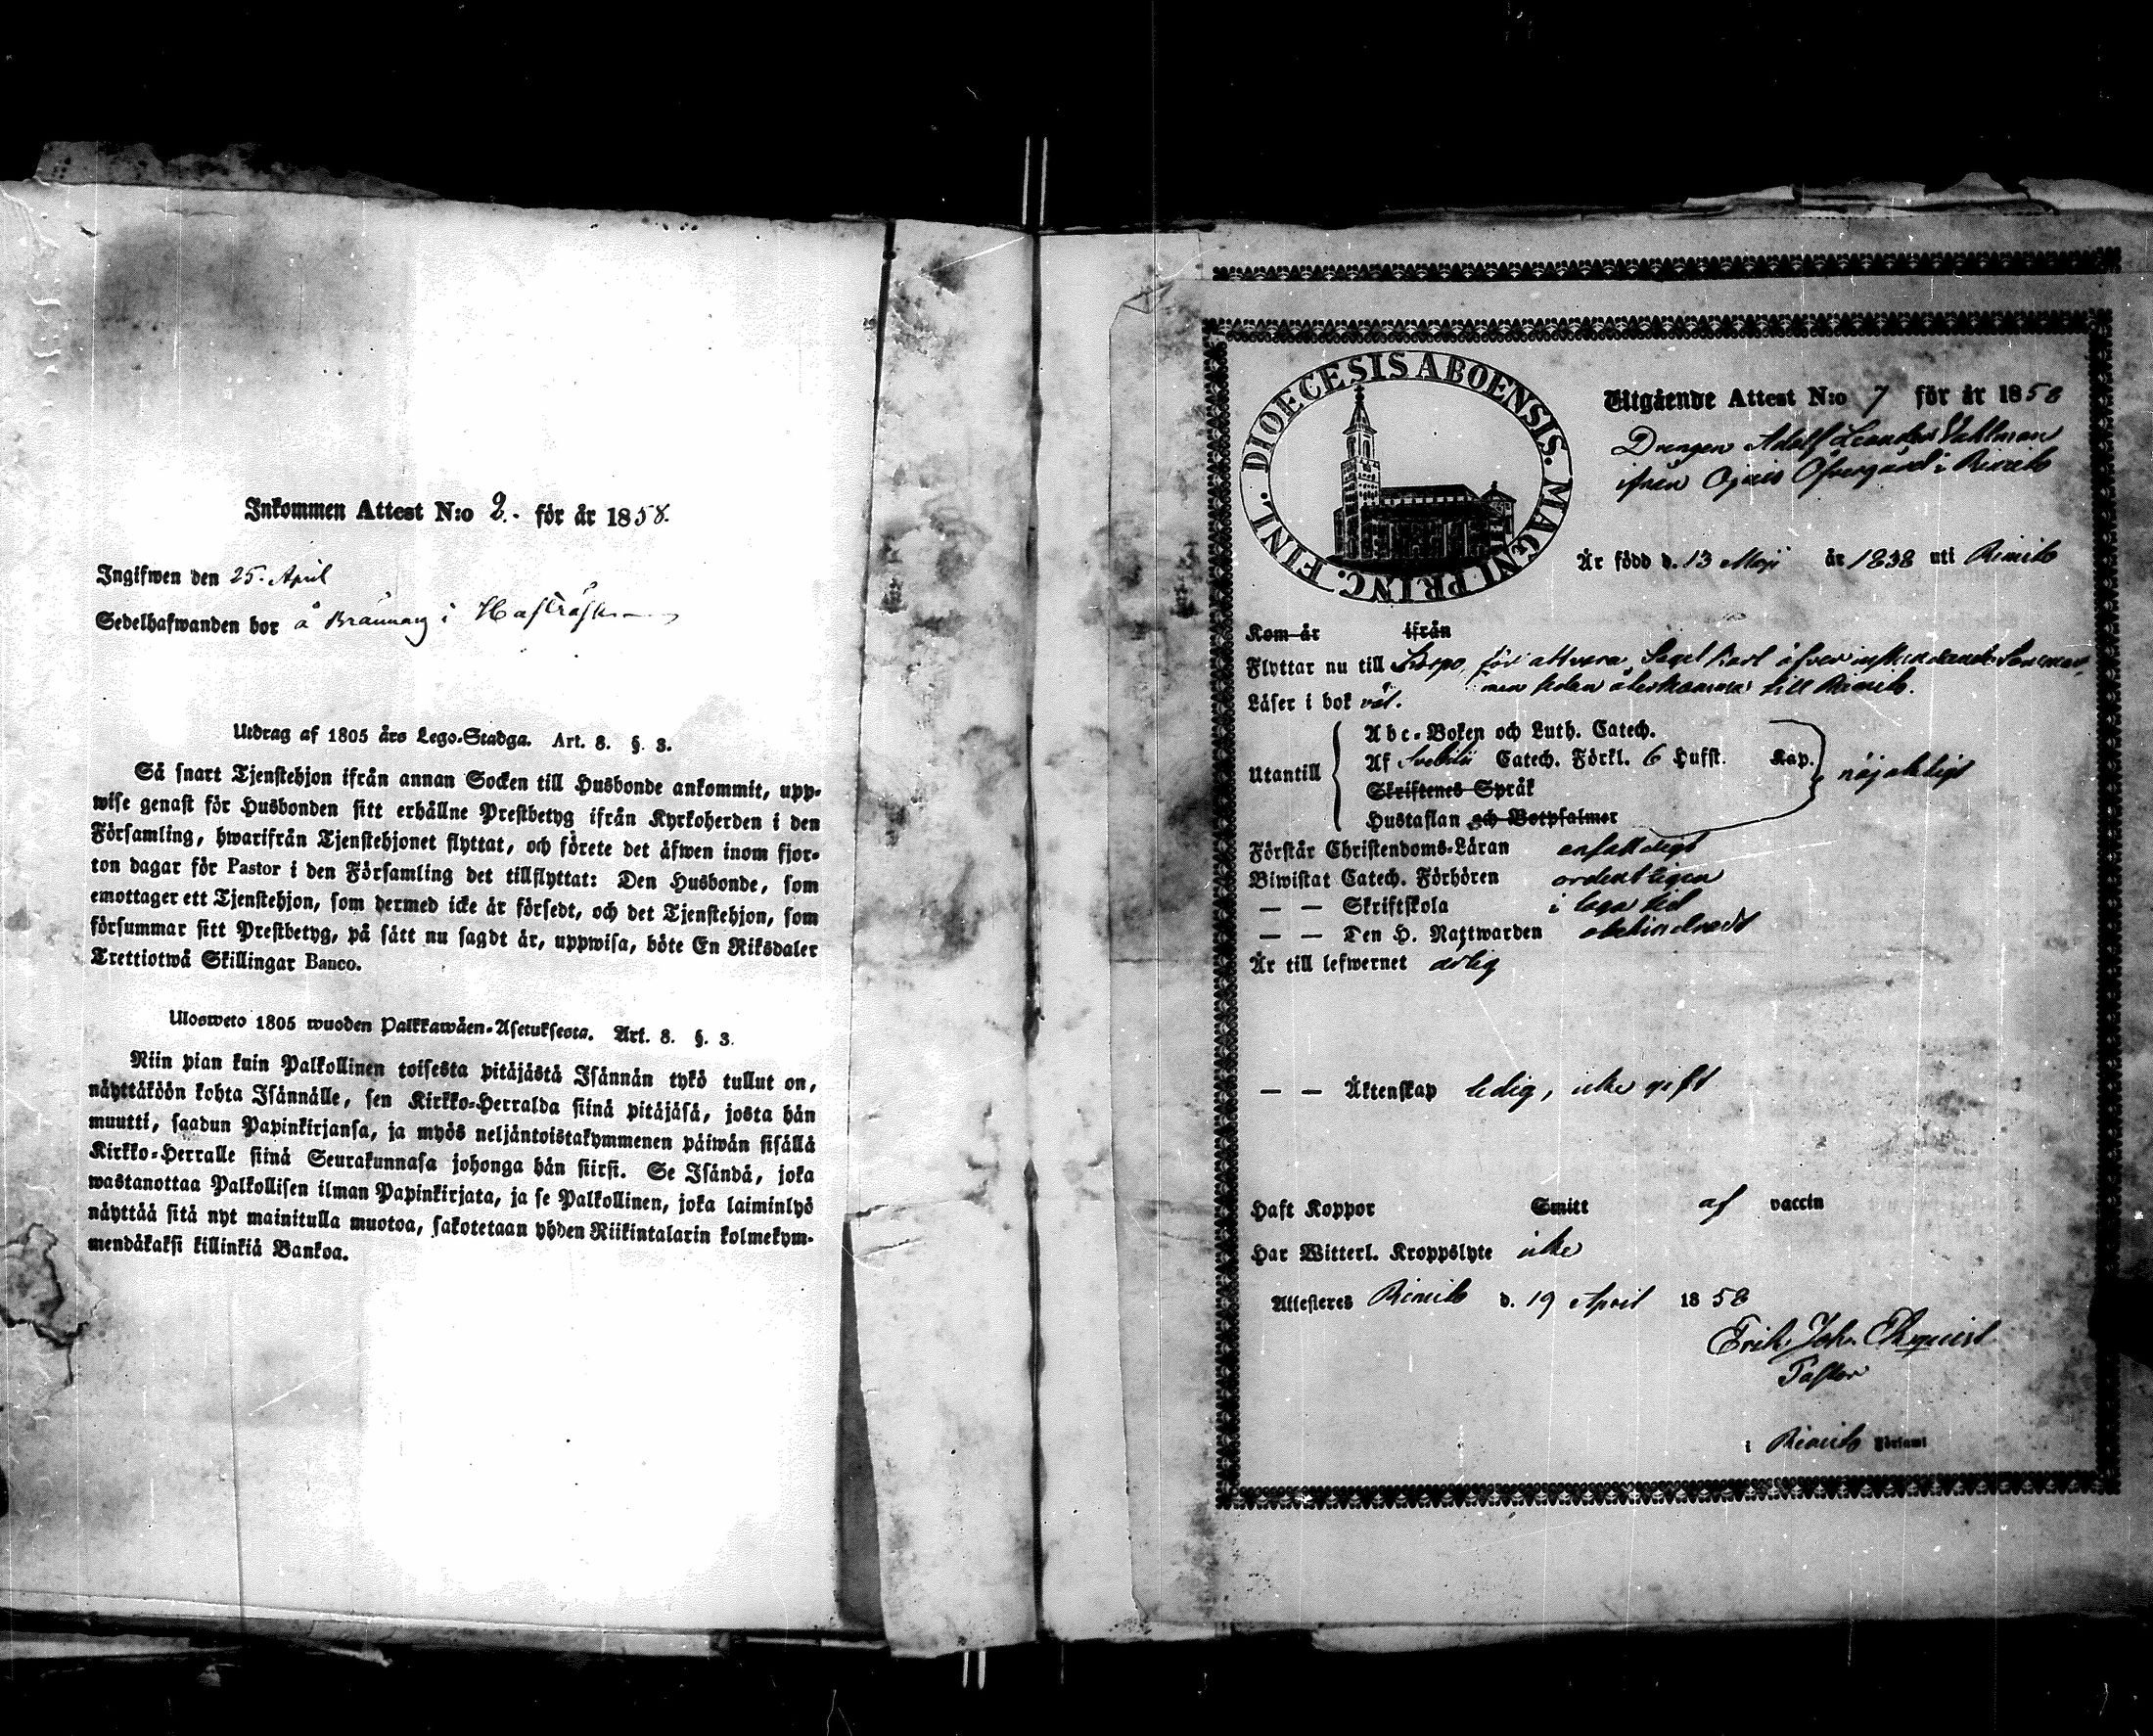 Inkommen Attest N:o 2. för år 1858.
Ingifwen den 25. April
Sedelhafwanden bor å Brännarg i
Utdrag af 1805 års Lego-Stadga. Art. 8. §. 3.
Så snart Tjenstehjon ifrån annan Socken till Husbonde ankommit, upp-
wise genast för Husbonden sitt erhållne Prestbetyg ifrån Kyrkoherden i den
Församling, hwarifrån Tjenstehjonet flyttat, och förete det äfwen inom fjor-
ton dagar för Pastor i den Församling det tillflyttat: Den Husbonde, som
emottager ett Tjenstehjon, som dermed icke är försedt, och det Tjenstehjon, som
försummar sitt Prestbetyg, på sätt nu sagdt är, uppwisa, böte En Riksdaler
Trettiotwå Skillingar Banco.
Ulosweto 1805 wuoden Palkkawäen-Asetuksesta. Art. 8. §. 3.
Niin pian kuin Palkollinen toisesta pitäjästä Isännän tykö tullut on,
näyttäköön kohta Isännälle, sen Kirkko-Herralda siinä pitäjäsä, josta hän
muutti, saadun Papinkirjansa, ja myös neljäntoistakymmenen päiwän sisällä
Kirkko-Herralle siinä Seurakunnasa johonga hän siirsi. Se Isändä, joka
wastanottaa Palkollisen ilman Papinkirjata, ja se Palkollinen, joka laiminlyö
näyttää sitä nyt mainitulla muotoa, sakotetaan yhden Riikintalarin kolmekym-
mendäkaksi killinkiä Bankoa.
DIOECESIS ABOENSIS. MAGNI PRINC. FINL.
Utgående Attest N:o 7 för år 1858
Drengen Adolf Leander Vahlman
ifrån Ofvergård i Rimito
Är född d. 13 Maji år 1838 uti Rimito
Kom år ifrån
Flyttar nu till Korpo, för att vara Segel Karl
men sedan återkomma till Rimito.
Läser i bok väl.
Abc-Boken och Luth. Catech.
Utantill Af Svebilii Catech. Förkl. 6 Hufst. Kap. nöjaktigt
Skriftenes Språk
Hustaflan och Botpsalmer
Förstår Christendoms-Läran enfaldigt
Biwistat Catech. Förhören ordentligen
— — Skriftskola i laga tid
— — Den H. Nattwarden obehindradt
Är till lefwernet ärlig
— — Äktenskap ledig, icke gift
Haft Koppor Smitt af vaccin
Har Witterl. Kroppslyte icke
Attesteres Rimito d. 19 April 1858
Erik Joh. Ekquist
Pastor
i Rimito Församl